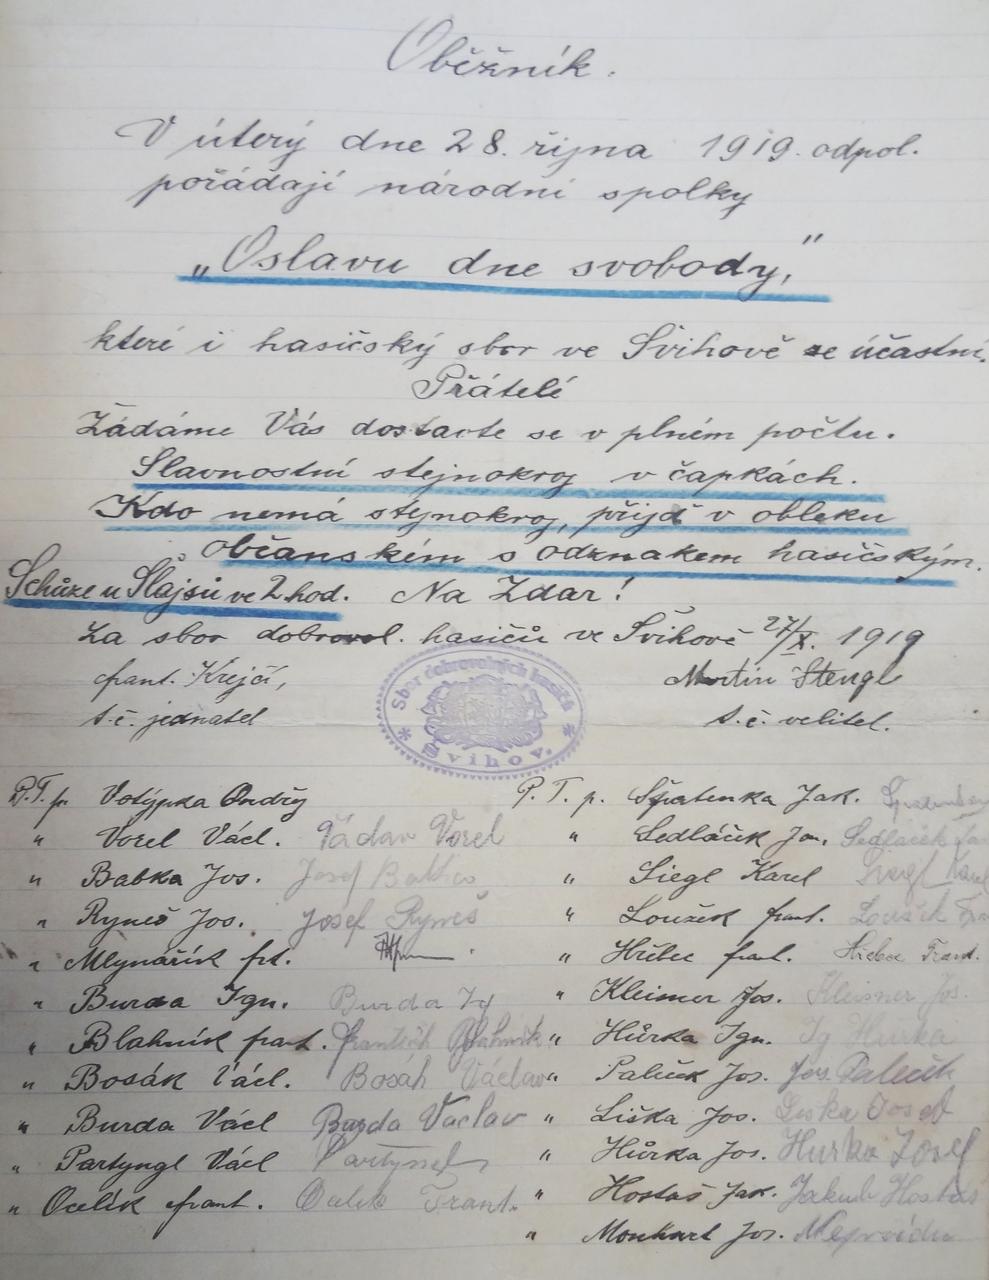 Oběžník.
V úterý dne 28. října 1919. odpol.
pořádají národní spolky
„Oslavu dne svobody,"
které i hasičský sbor ve Švihově se účastní.
Přátelé
Žádáme Vás dostavte se v plném počtu.
Slavnostní stejnokroj v čapkách.
Kdo nemá stejnokroj, přijď v obleku
občanském s odznakem hasičským.
Schůze u Šlajsů ve 2 hod. Na Zdar!
Za sbor dobrovol. hasičů ve Švihově 27/X. 1919
frant. Krejčí, Martin Štengl
t.č. jednatel t.č. velitel.
Sbor dobrovolných hasičů
* Švihov. *
P.T. p. Votýpka Ondřej
" Vorel Václ. Václav Vorel
" Babka Jos. Josef Babka
" Ryneš Jos. Josef Ryneš
" Mlynařík frt.
" Burda Ign. Burda Ig
" Blahník frant. František Blahník
" Bosák Václ. Bosák Václav
" Burda Václ Burda Vaclav
" Partyngl Václ Partyngl
" Ocelík frant. Ocelik Frant.
P. T. p. Špatenka Jak.
" Sedláček Jan. Sedláček Jan
" Siegl Karel Siegl Karel
" Loužek frant. Loužek Fr
" Hřebec frant. Hřebec Frant.
" Kleisner Jos. Kleisner Jos.
" Hůrka Ign. Ig Hurka
" Paleček Jos. Jos. Paleček
" Liška Jos. Liska Josef
" Hůrka Jos. Hurka Josef
" Hostaš Jak. Jakub Hostaš
" Jos.